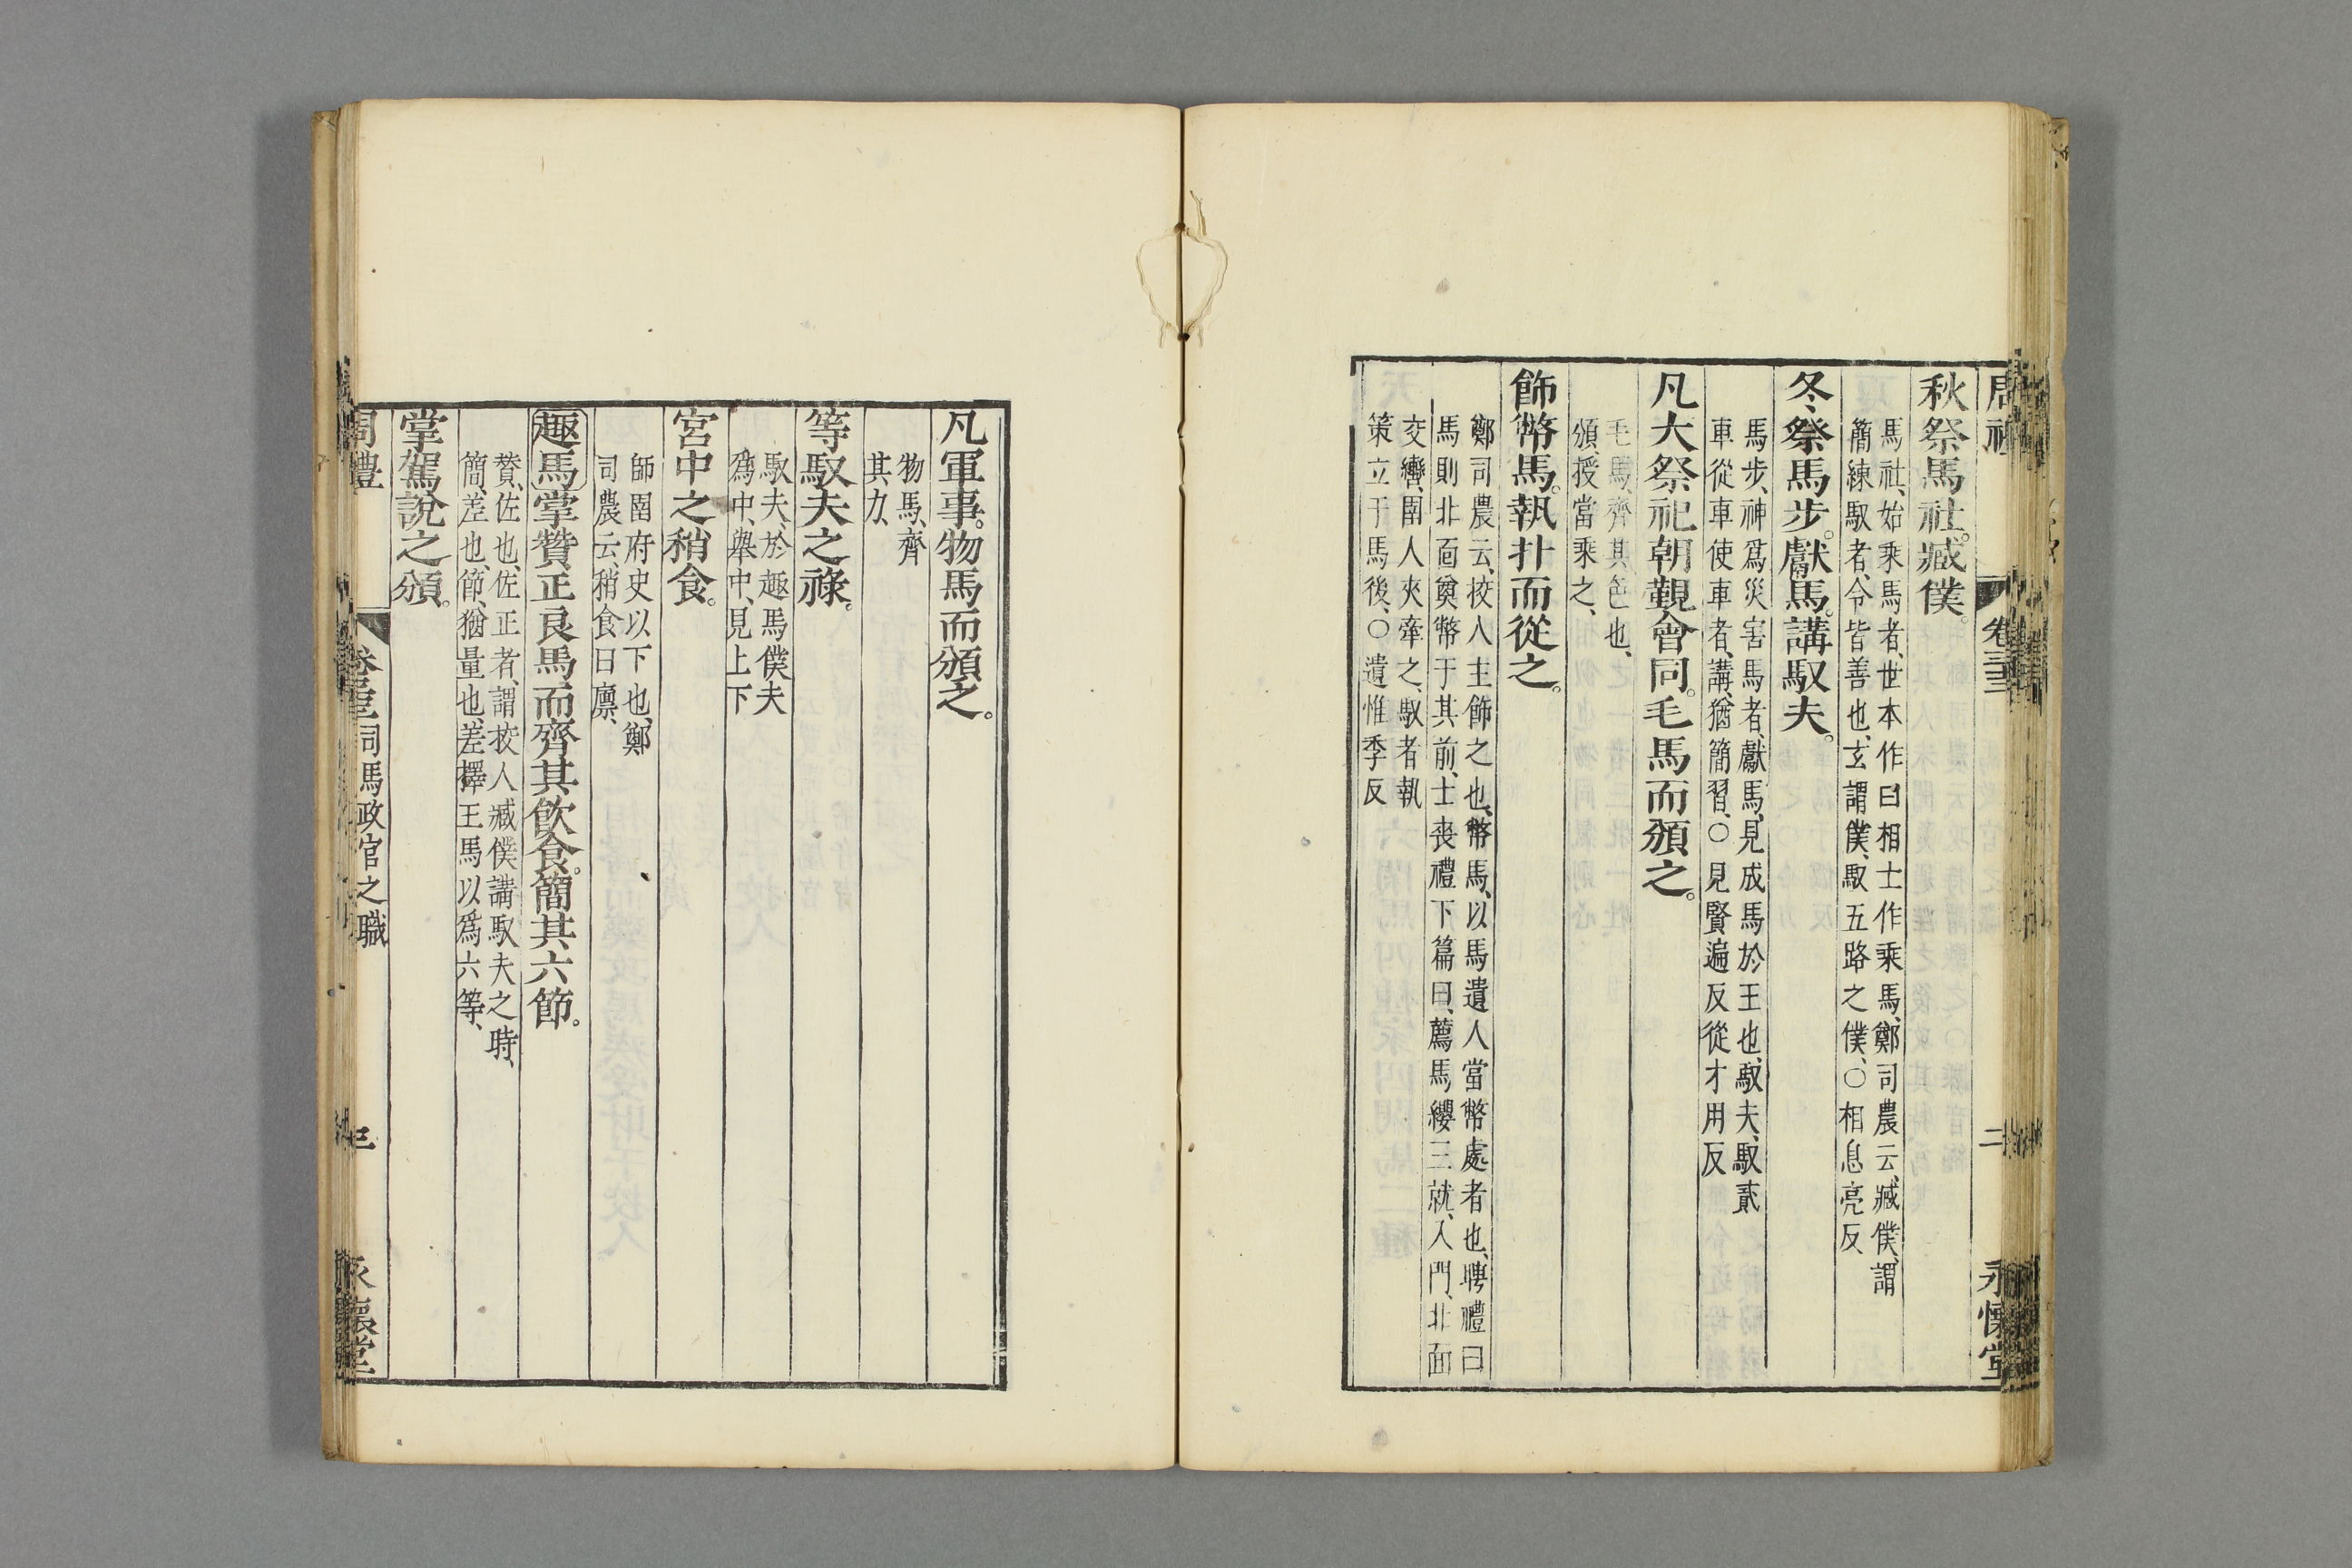 周禮 卷三十三 二 永懷堂
秋祭馬社。臧僕。
馬社、始乘馬者、世本作曰相士作乘馬、鄭司農云、臧僕、謂
簡練馭者、令皆善也、玄謂僕、馭五路之僕、〇相息亮反
冬祭馬步。獻馬。講馭夫。
馬步、神爲災害馬者、獻馬、見成馬於王也、馭夫、馭貳
車從車使車者、講、猶簡習、〇見賢遍反從才用反
凡大祭祀朝覲會同。毛馬而頒之。
毛馬、齊其色也、
頒、授當乘之、
飾幣馬。執扑而從之。
鄭司農云、校人主飾之也、幣馬、以馬遺人當幣處者也、聘禮曰
馬則北面奠幣于其前、士喪禮下篇曰、薦馬纓三就、入門、北面
交轡、圉人夾牽之、馭者執
策立于馬後、〇遺惟季反
凡軍事。物馬而頒之。
物馬、齊
其力、
等馭夫之祿。
馭夫、於趣馬僕夫
爲中、舉中、見上下
宮中之稍食。
師圉府史以下也、鄭
司農云、稍食曰廩、
趣馬掌贊正良馬。而齊其飲食。簡其六節。
贊、佐也、佐正者、謂挍人臧僕講馭夫之時、
簡、差也、節、猶量也、差擇王馬以爲六等、
掌駕說之頒。
周禮 司馬政官之職 三 永懷堂